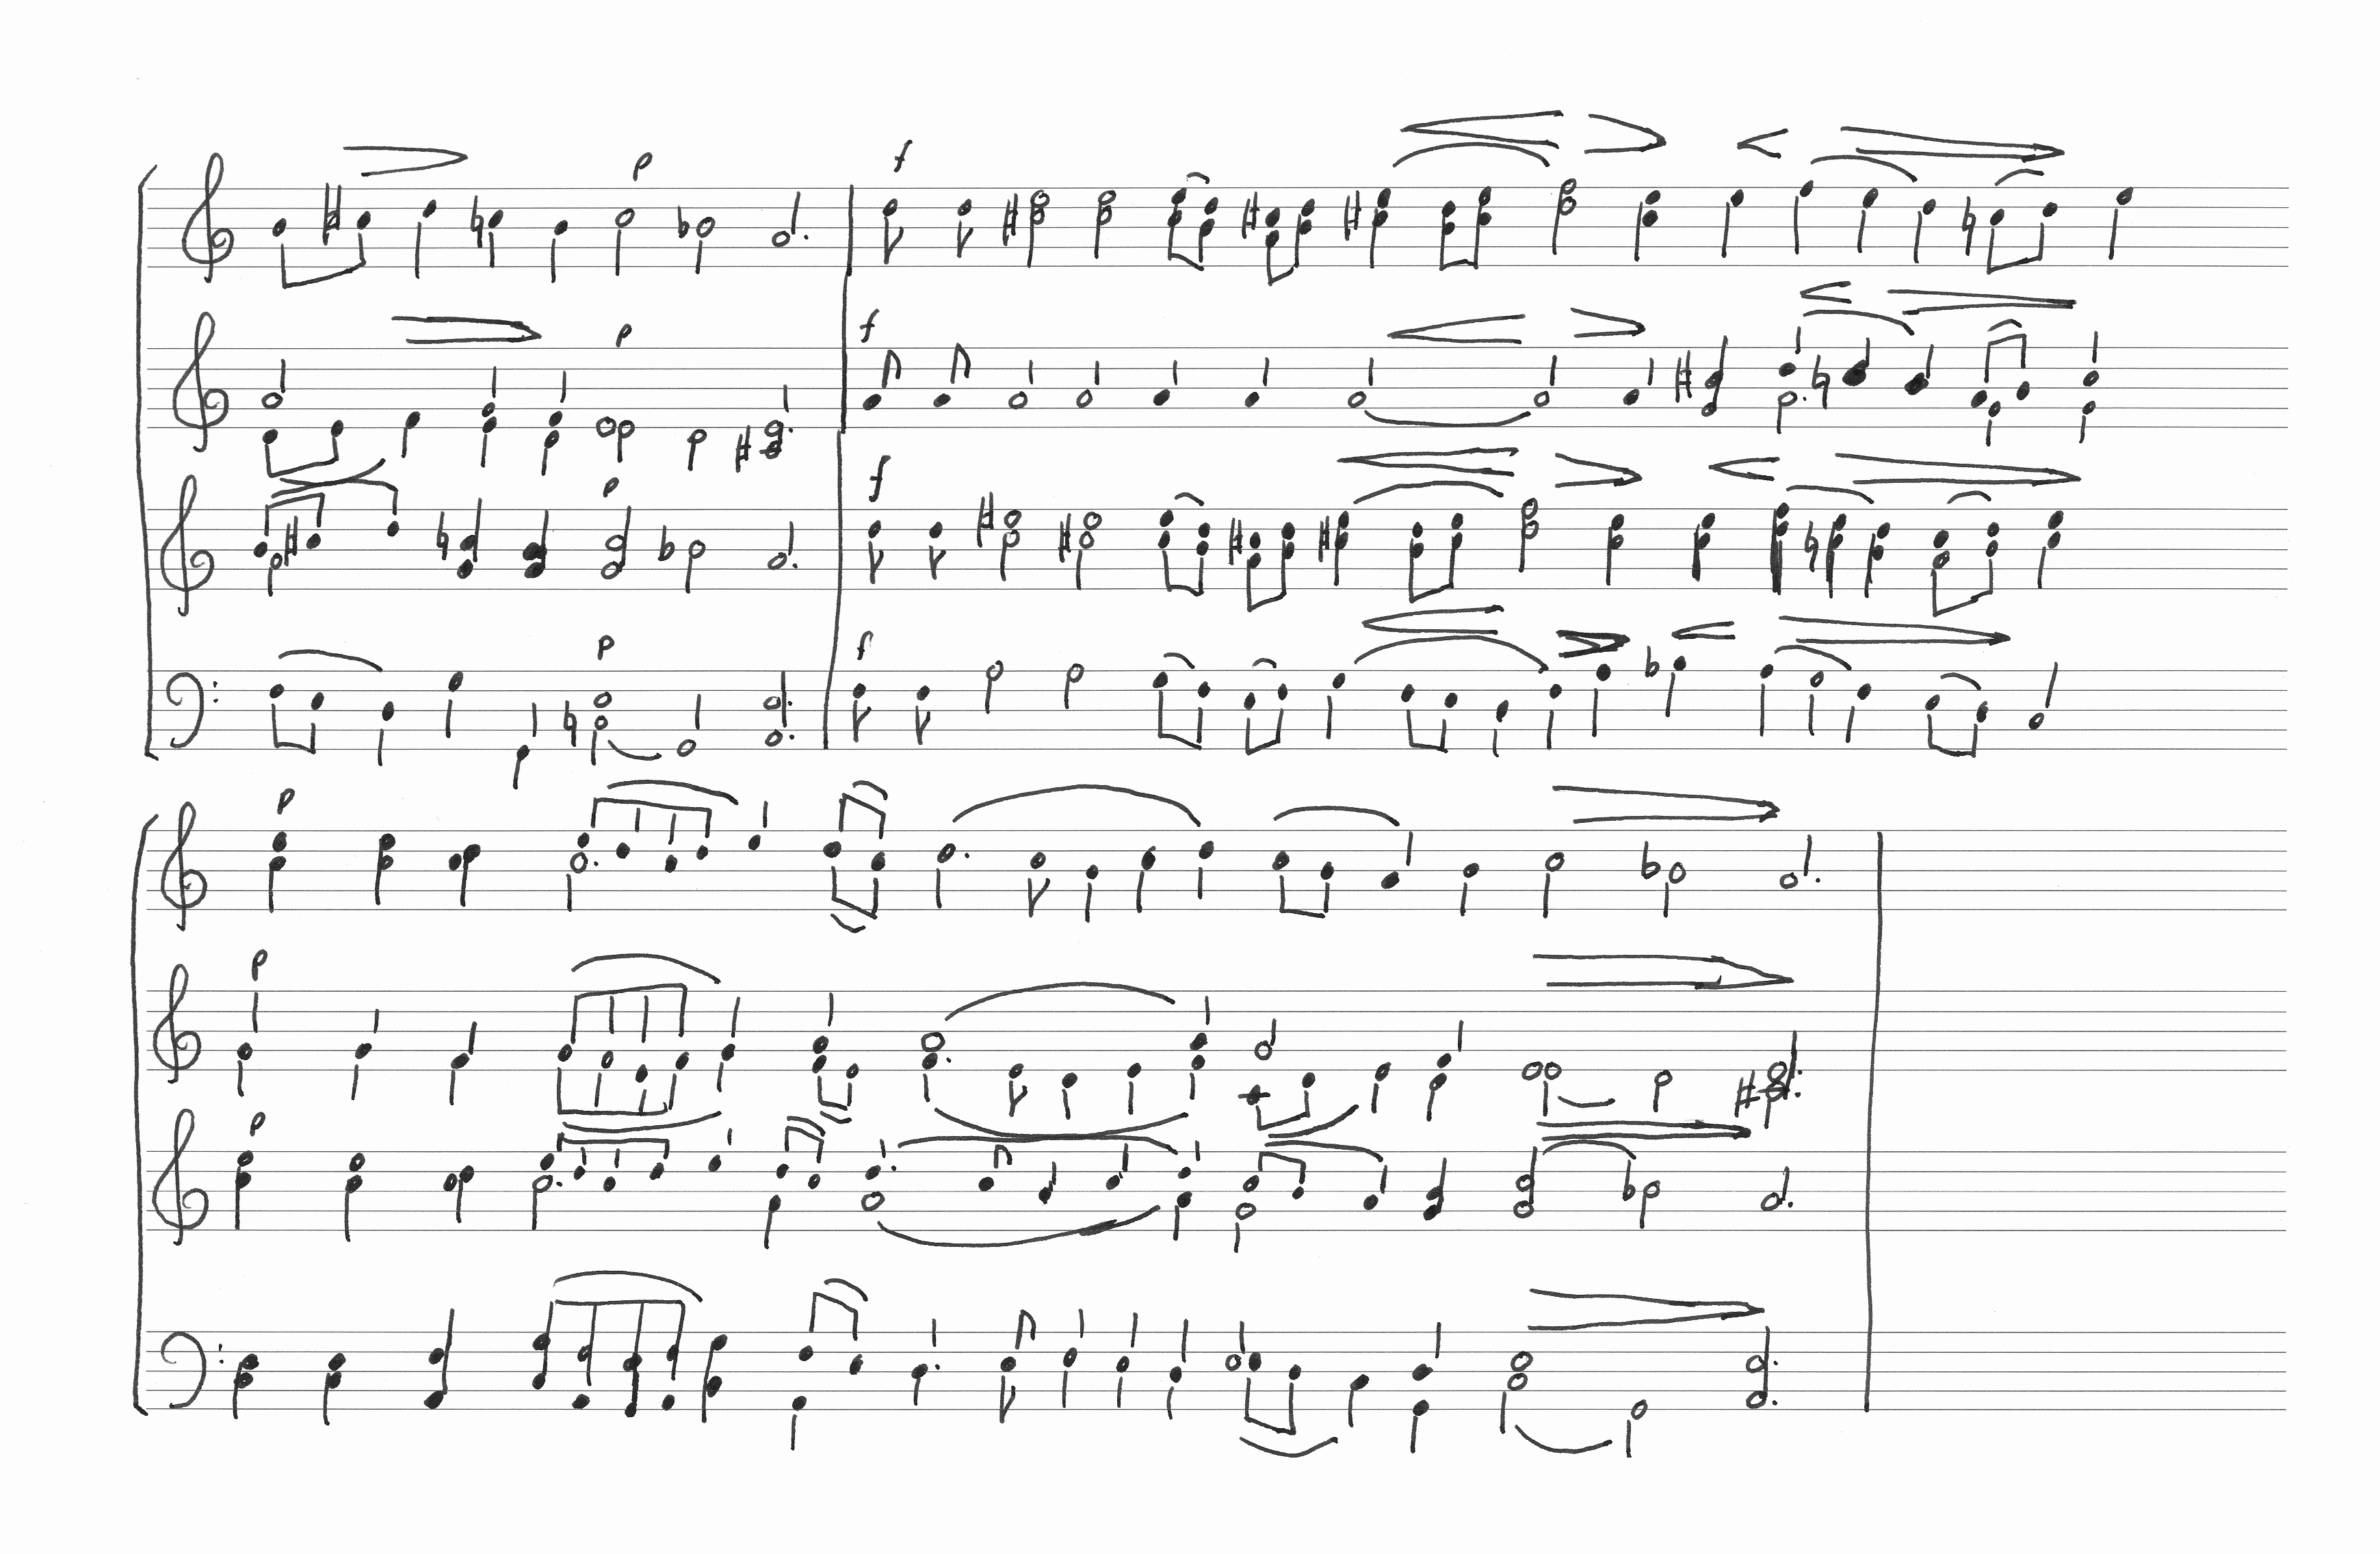 p
f
p
f
p
f
p
f
p
p
p